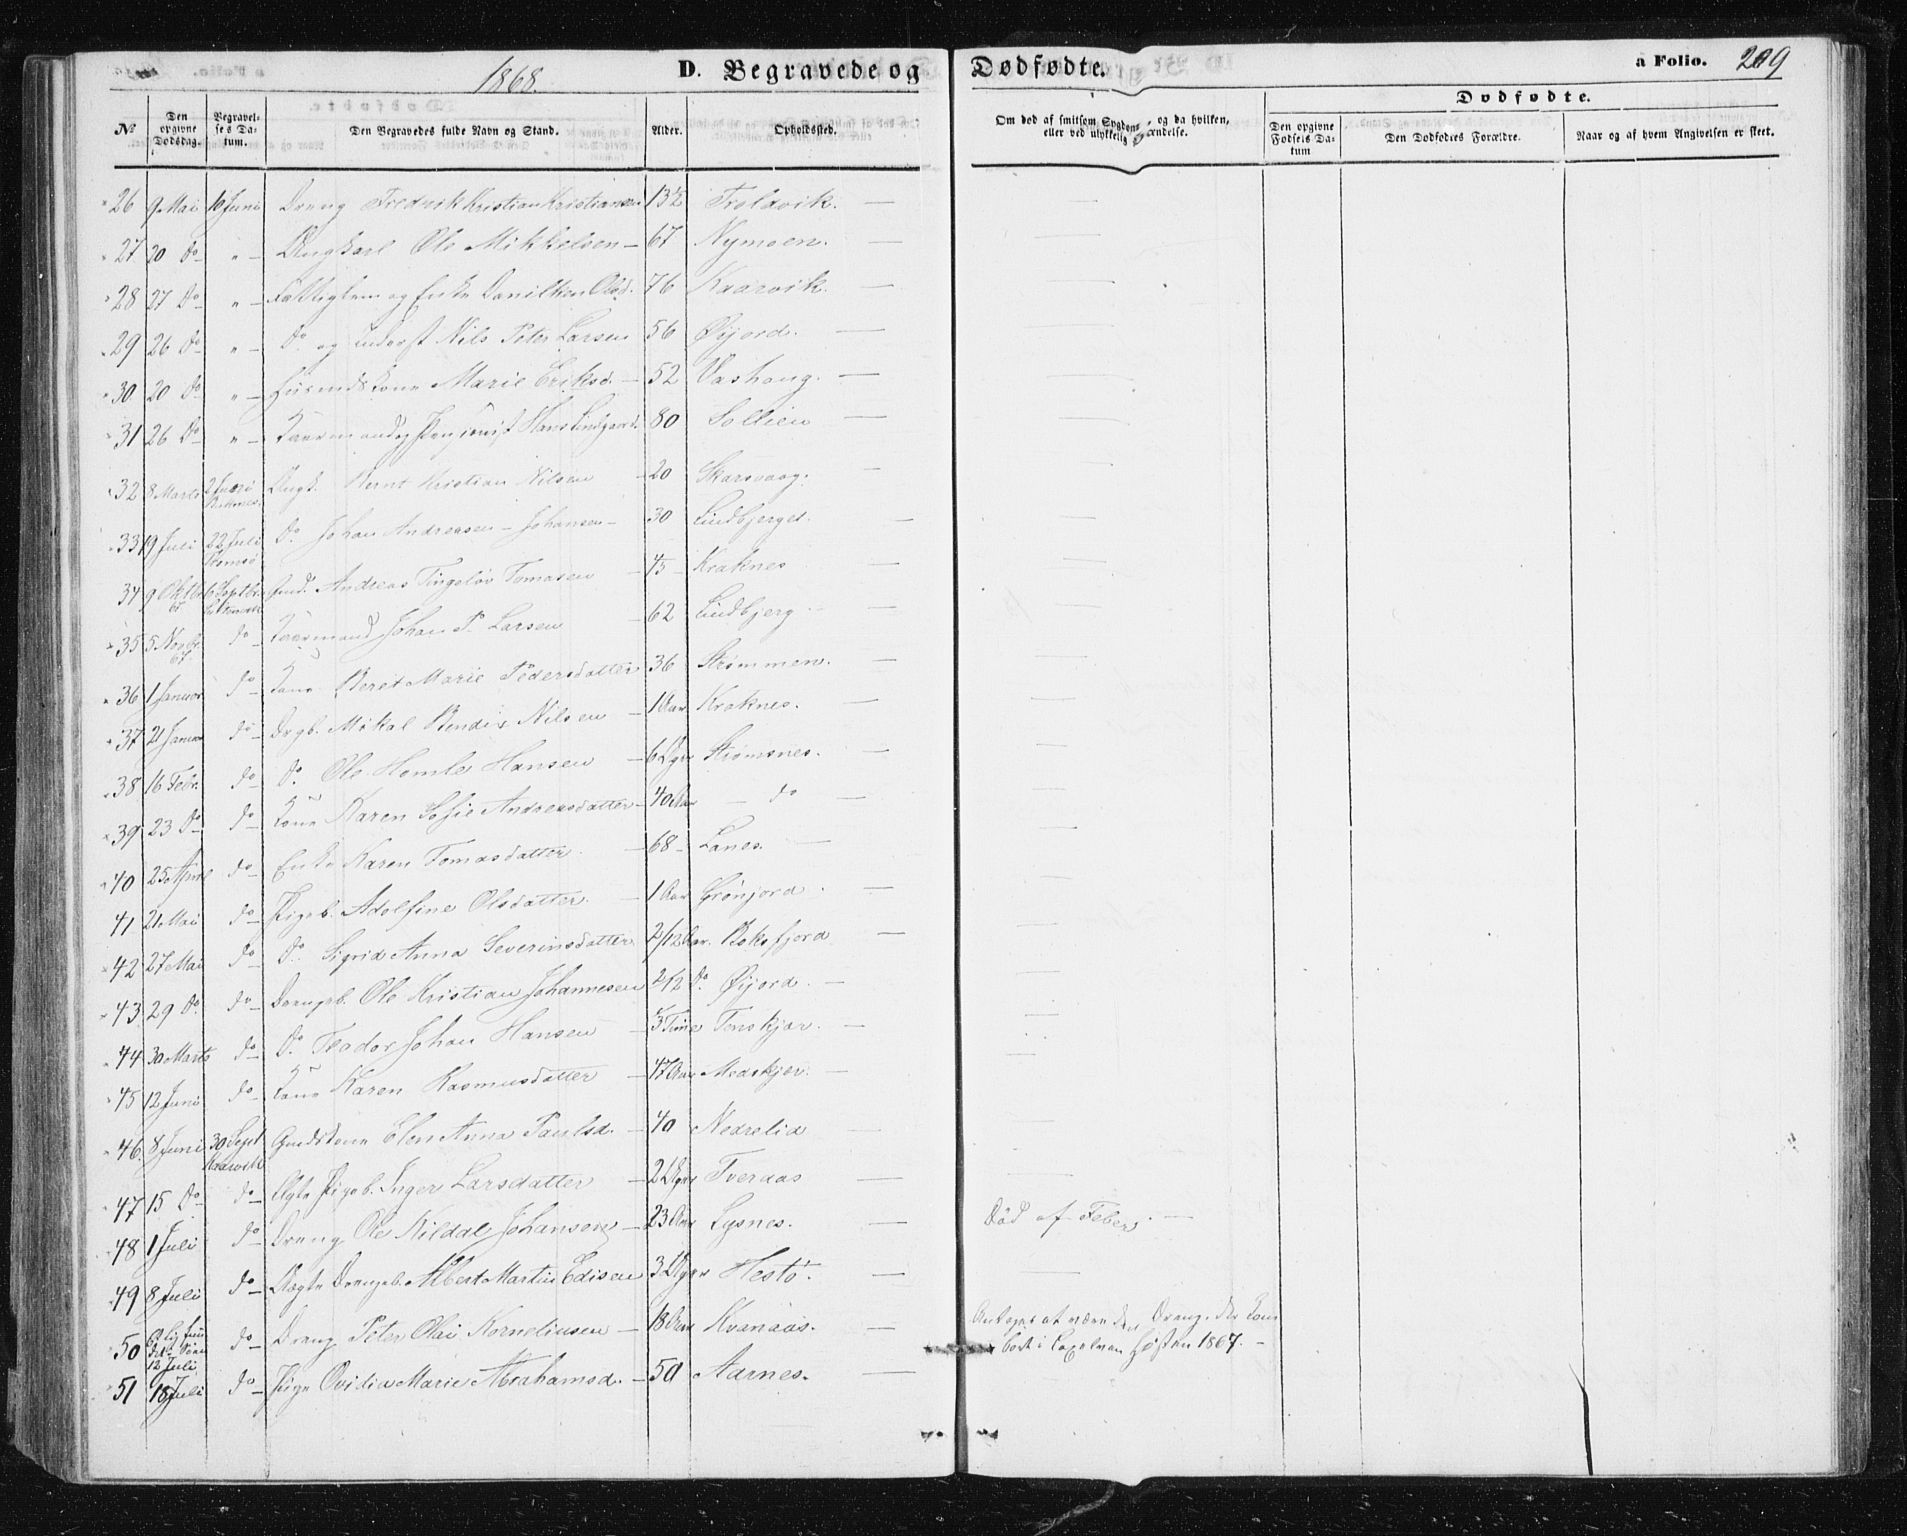 1868.
D. Begravede og Dødfødte.
a Folio. 209
№
Den opgivne Dødsdag.
Begravelses Datum.
Den Begravedes fulde Navn og Stand.
Alder.
Opholdssted.
Om død af smitsom Sygdom og da hvilken, eller ved ulykkelig Hændelse.
Dødfødte.
Den opgivne Fødsels Datum
Den Dødfødtes Forældre.
Naar og af hvem Angivelsen er skeet.
26 9 Mai 16 Juni Dreng Fredrik Kristian Kristiansen 13½ Troldvik. —
27 20 do " — Ungkarl Ole Mikkelsen — 67 Nymoen. —
28 27 do " — Fattiglem og Enke Danilken Olsd. 76 Kaarvik. —
29 26 do " — do og Inderst Nils Peter Larsen 56 Øijord. —
30 20 do " — Huusmandskone Marie Eriksd. — 52 Vashaug. —
31 26 do " — Kaarmand og Pensionist Hans Lindgaard. 80 Sollien
32 8 Marts 2 Juni Ungk. Bernt Kristian Nilsen — 20 Skarsvaag. —
33 19 Juli 22 Juli Tromsø do Johan Andreasen — Johansen — 30 Lindbjerget. —
34 9 Oktbr. 67 6 Septbr. Gmd. Andreas Tingeløv Tomasen — 45 Kraknes —
35 5 Novbr. 67 do — Kaarmand Johan P. Larsen — 62 Lindbjerg —
36 1 Januar do — Kone Beret Marie Pedersdatter 36 Strømmen. —
37 21 Januar do — Drgb. Mikal Bendix Nilsen — 1 Aar Kraknes. —
38 16 Febr. do — do Ole Homle Hansen — 6 Dgr Strømsnes. —
39 23 do do — Kone Karen Sofie Andreasdatter — 40 Aar — do —
40 25 April do — Enke Karen Tomasdatter. — 68 — Lanes. —
41 21 Mai do — Pigeb. Adolfine Olsdatter. — 1 Aar Grønjord. —
42 27 Mai do — do Sigrid Anna Severinsdatter. 2/12 Aar. Roksfjord —
43 29 do do — Drengeb. Ole Kristian Johannesen 2/12 do Øijord. —
44 30 Marts do — do Teodor Johan Hansen — ⅓ Time Tenskjær. —
45 12 Juni do — Kone Karen Rasmusdatter — 47 Aar Medskjer. —
46 8 Juni 30 Sept Kaarvik Gmdskone Elen Anna Paulsd. — 40 Nedrelid —
47 15 do do — Ægte Pigeb. Inger Larsdatter — 2 Dgr Tveraas
48 1 Juli do — Dreng Ole Kildal Johansen — 23 Aar Lysnes. — Død af Feber. —
49 8 Juli do — Uægte Drengeb. Albert Martin Edisen 3 Dgr Hestø. —
50 12 Juli do — Dreng Peter Olai Korneliusen — 18 Aar Kvanaas. — Antages at være den Dreng, der kom bort i Høsten 1867. —
51 18 Juli do — Pige Ovidia Marie Abrahamsd. — 50 Aarnes. —